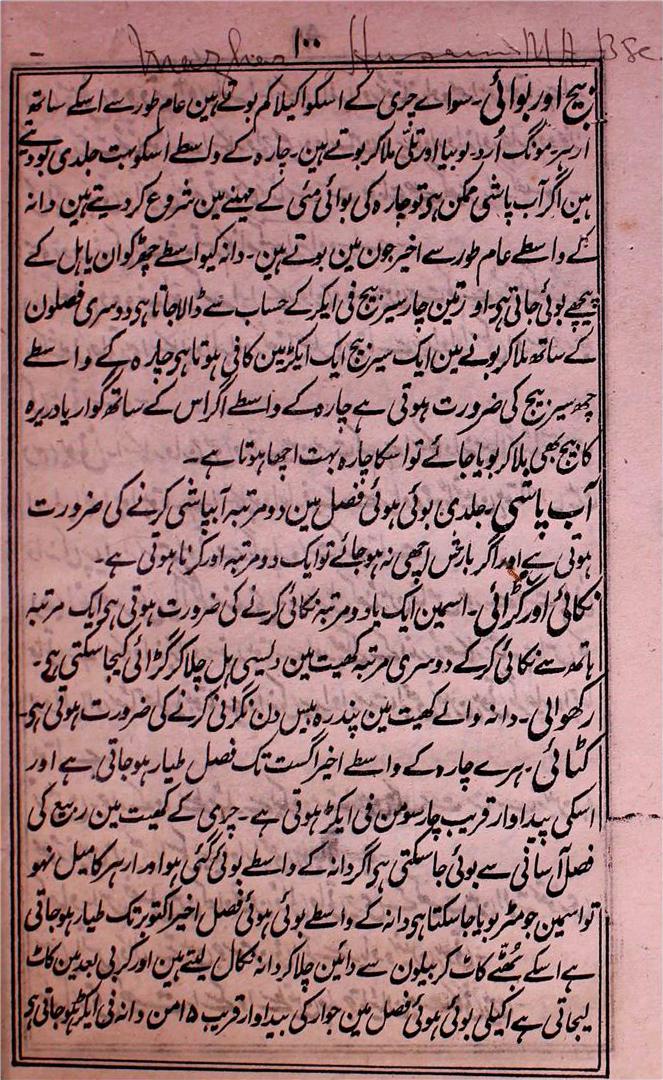 ۱۰۰
Mazher Husain M.A., B.Sc.
بیج اور بوائی۔ سواے چری کے اسکو اکیلا کم بوتے ہین عام طور سے اسکے ساتھ
ارہر۔ مونگ اُرد۔ لوبیا اور تلّی ملا کر بوتے ہین۔ چارہ کے واسطے اسکو بہت جلدی بو دیتے
ہین اگر آب پاشی ممکن ہی تو چارہ کی بوائی مئی کے مہینے مین شروع کر دیتے ہین دانہ
کے واسطے عام طور سے اخیر جون مین بوتے ہین۔ دانہ کیواسطے چھڑکوان یا ہل کے
پیچھے بوئی جاتی ہی۔ اور تین چار سیر بیج فی ایکر کے حساب سے ڈالا جاتا ہی دوسری فصلون
کے ساتھ ملا کر بونے مین ایک سیر بیج ایک ایکڑ مین کافی ہوتا ہی چارہ کے واسطے
چھ سیر بیج کی ضرورت ہوتی ہے چارہ کے واسطے اگر اس کے ساتھ گوار یا دریرہ
کا بیج بھی ملا کر بویا جائے تو اسکا چارہ بہت اچھا ہوتا ہے۔
آب پاشی۔ جلدی بوئی ہوئی فصل مین دو مرتبہ آبپاشی کرنے کی ضرورت
ہوتی ہے اور اگر بارش اچھی نہ ہو جائے تو ایک دو مرتبہ اور کرنا ہوتی ہے۔
نکائی اور گڑائی۔ اسمین ایک یا دو مرتبہ نکائی کرنے کی ضرورت ہوتی ہی ایک مرتبہ
ہاتھ سے نکائی کر کے دوسری مرتبہ کھیت مین دیسی ہل چلا کر گڑائی کیجا سکتی ہی۔
رکھوالی۔ دانہ والے کھیت مین پندرہ بیس دن نگرانی کرنے کی ضرورت ہوتی ہی۔
کٹائی۔ ہرے چارہ کے واسطے اخیر اگست تک فصل طیار ہو جاتی ہے اور
اسکی پیداوار قریب چار سو من فی ایکڑ ہوتی ہے۔ چری کے کھیت مین ربیع کی
فصل آسانی سے بوئی جا سکتی ہی اگر دانہ کے واسطے بوئی گئی ہو اور ارہر کا میل نہو
تو اسمین جو مٹر بویا جا سکتا ہی دانہ کے واسطے بوئی ہوئی فصل اخیر اکتوبر تک طیار ہو جاتی
ہے اسکے بھُٹّے کاٹ کر بیلون سے دائین چلا کر دانہ نکال لیتے ہین اور کربی بعد مین کاٹ
لیجاتی ہے اکیلی بوئی ہوئی فصل مین جوار کی پیداوار قریب ۱۵ من دانہ فی ایکڑ ہو جاتی ہی